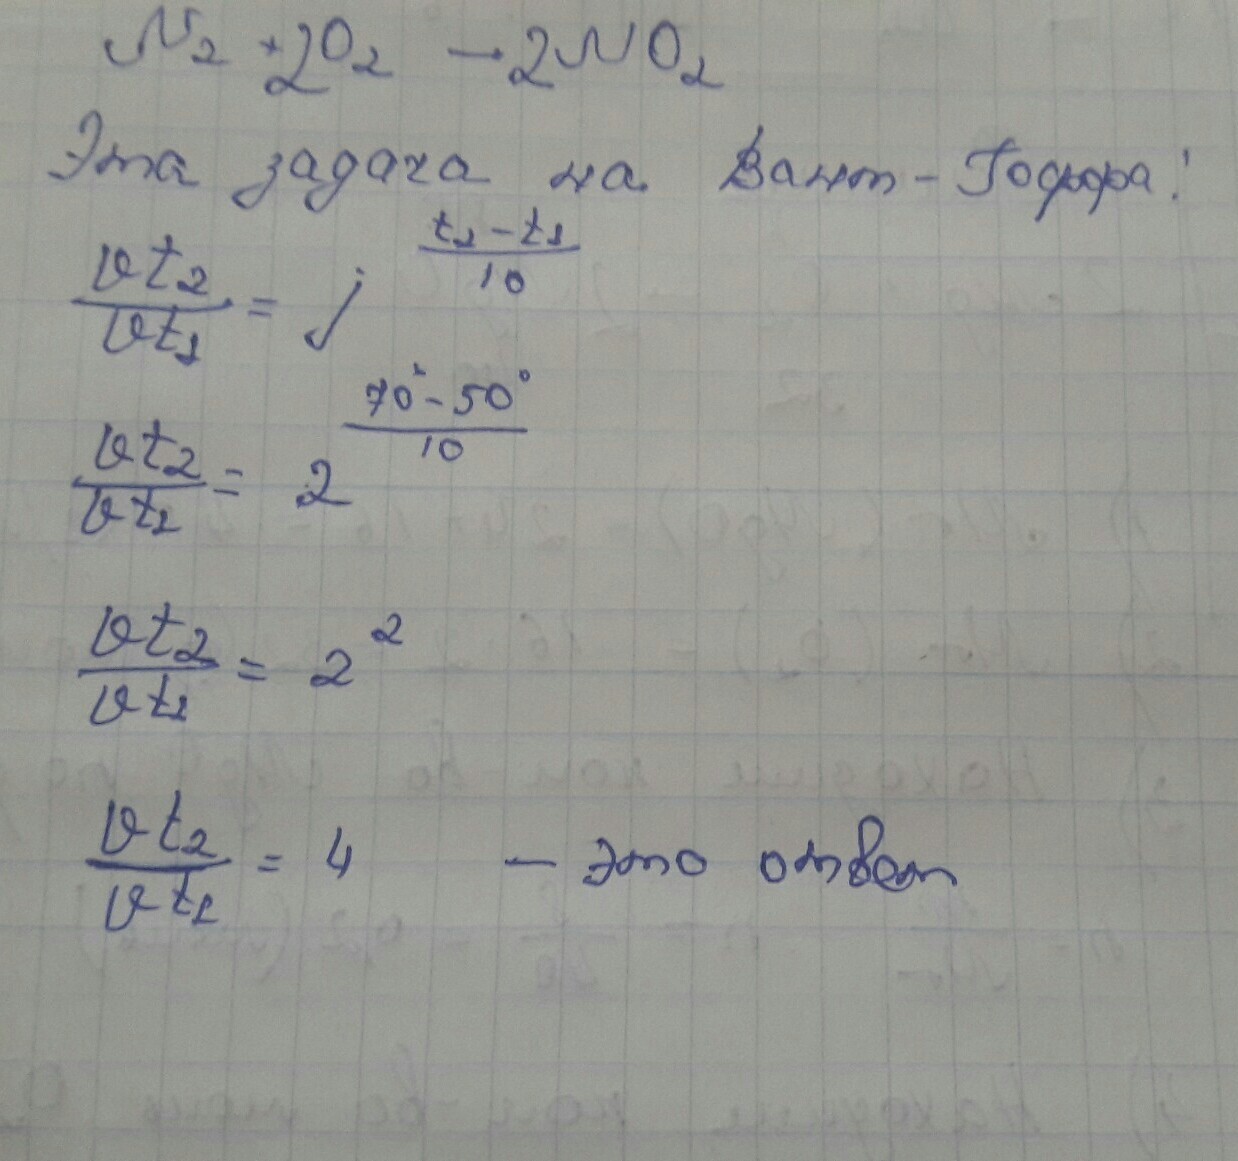 N₂ + 2O₂ → 2NO₂
Эта задача на Вант-Гоффа!
vt₂/vt₁ = j^((t₂ - t₁)/10)
vt₂/vt₁ = 2^((70° - 50°)/10)
vt₂/vt₁ = 2²
vt₂/vt₁ = 4 — это ответ